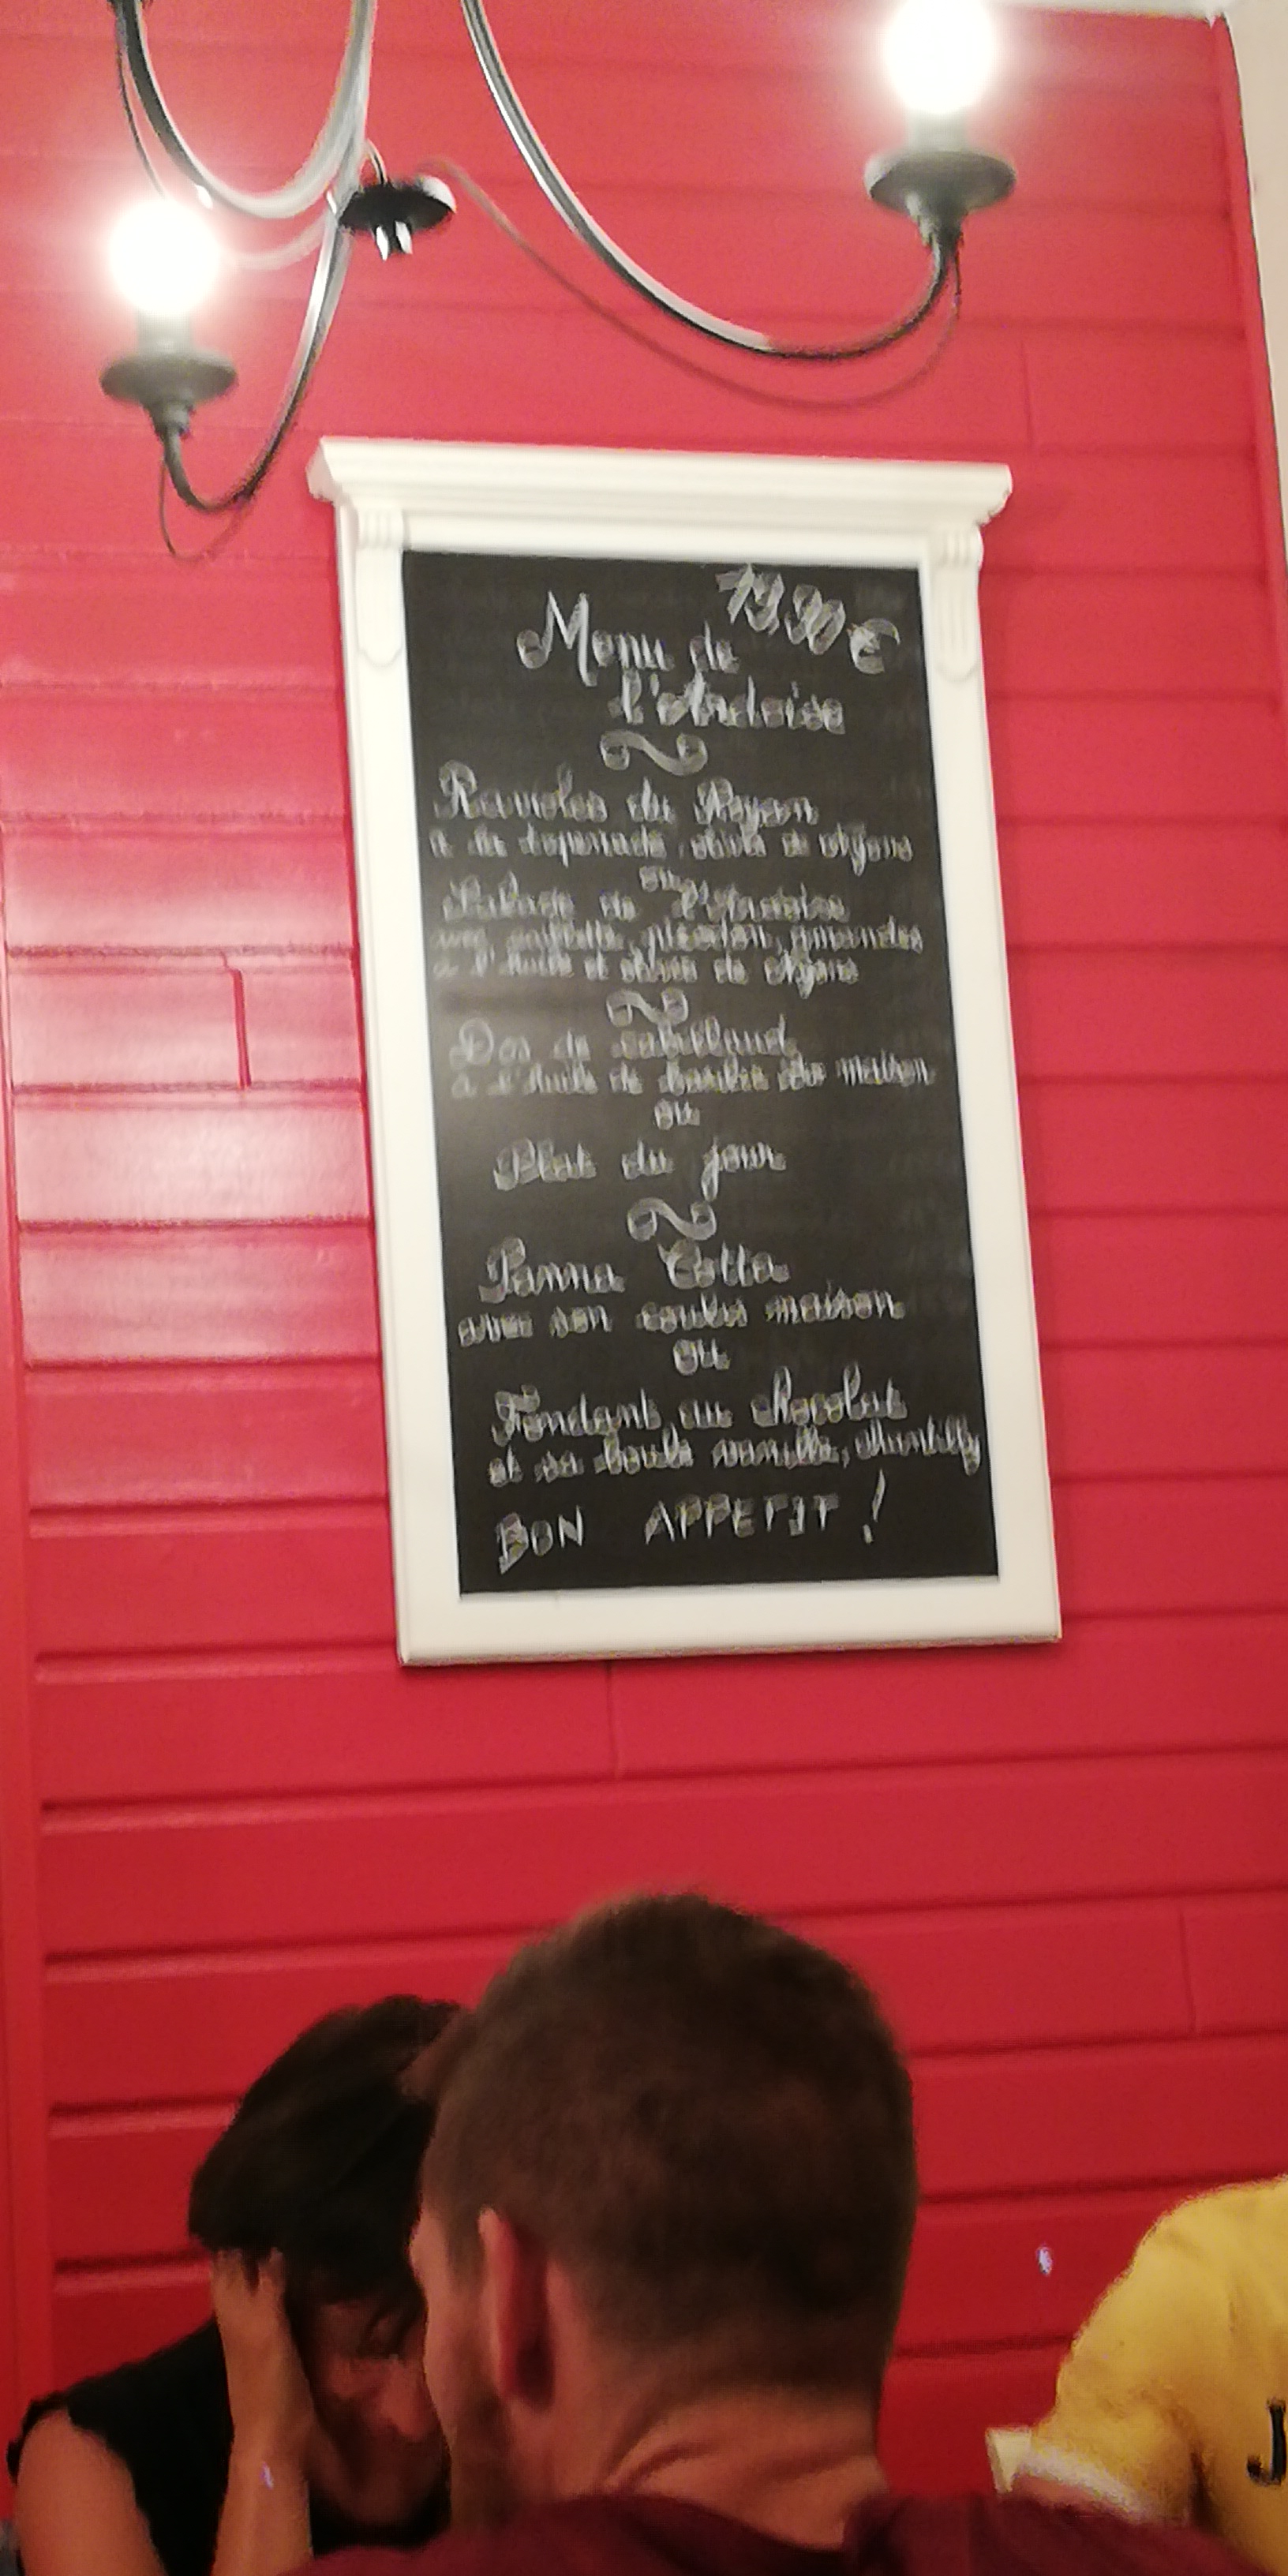 19,90 €
Menu de
l'Ardoise
Ravioles du Royan
à la tapenade, olives de Nyons
ou
Salade de l'Ardoise
avec
à l'huile et olives de Nyons
Dos de cabillaud
à l'huile de basilic maison
ou
Plat du jour
Panna Cotta
avec son coulis maison
ou
Fondant au chocolat
et sa boule vanille, chantilly
BON APPETIT !
J